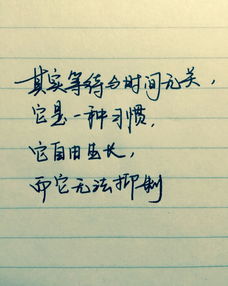 其实等待与时间无关，
它是一种习惯，
它自由生长，
而它无法抑制